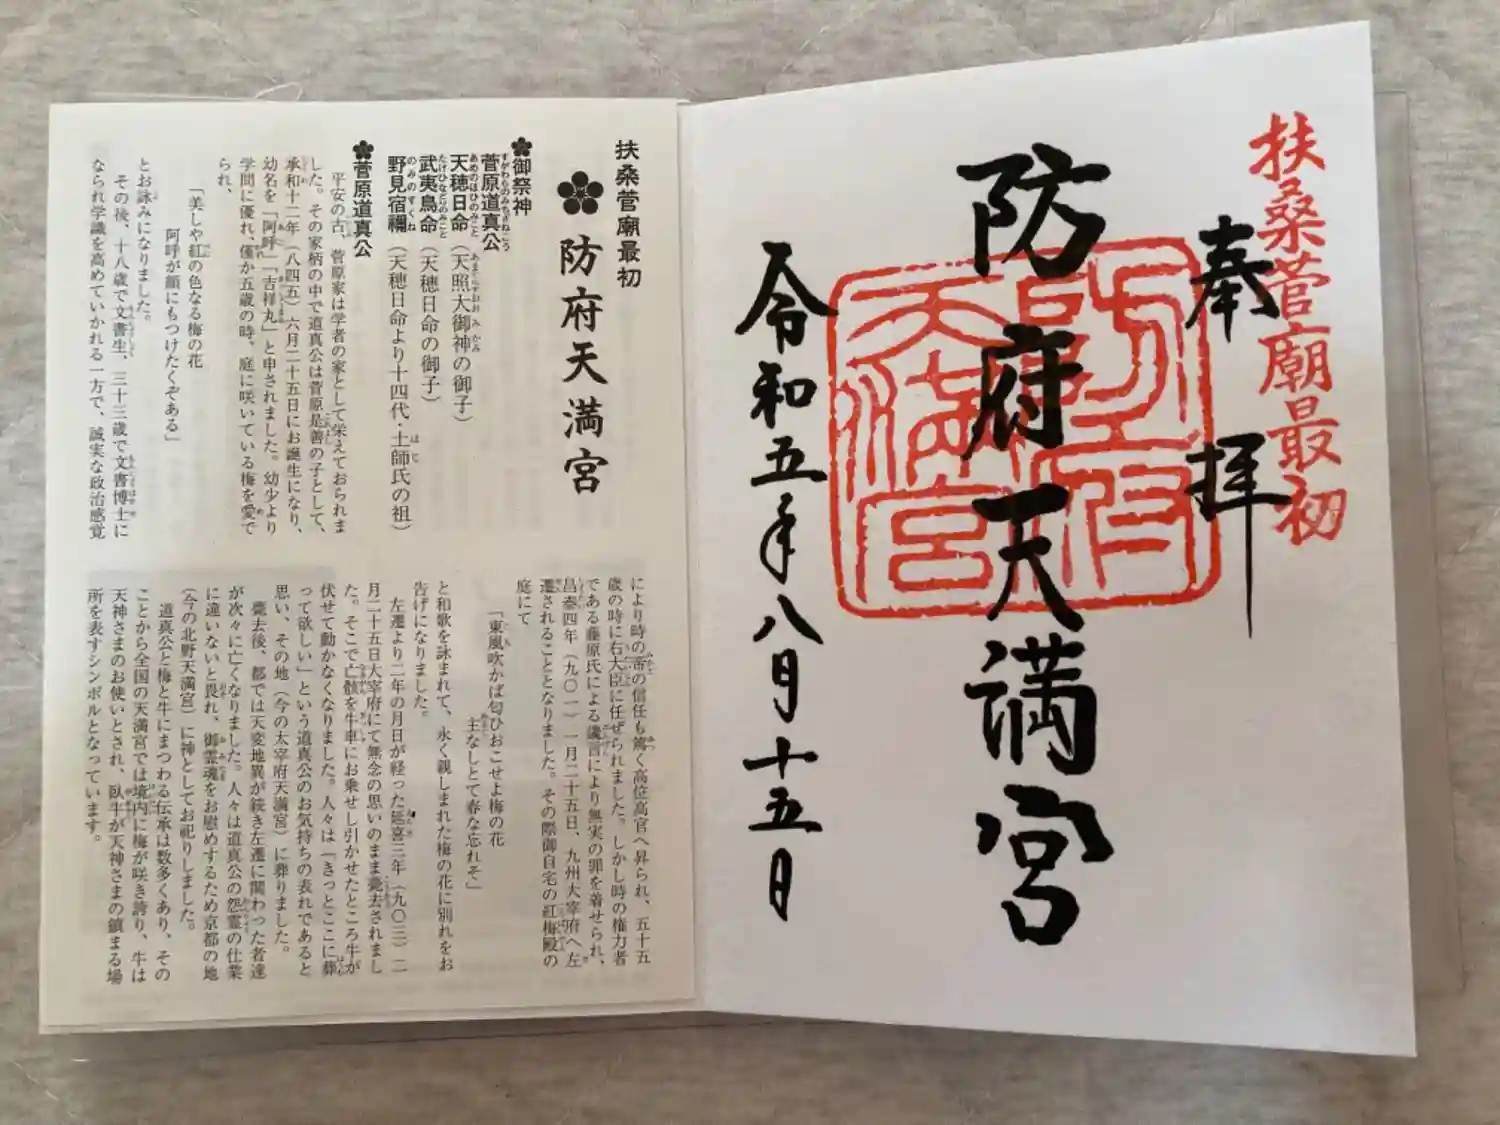 扶桑菅廟最初
奉拝
防府天満宮
防府天満宮
令和五年八月十五日
扶桑菅廟最初
防府天満宮
御祭神
菅原道真公
すがわらのみちざねこう
天穂日命（天照大御神の御子）
あめのほひのみこと
あまてらすおおみかみ
武夷鳥命（天穂日命の御子）
たけひなどりのみこと
野見宿禰（天穂日命より十四代・土師氏の祖）
のみのすくね
はじ
菅原道真公
平安の古、菅原家は学者の家として栄えておられま
した。その家柄の中で道真公は菅原是善の子として、
承和十二年（八四五）六月二十五日にお誕生になり、
幼名を「阿呼」「吉祥丸」と申されました。幼少より
学問に優れ、僅か五歳の時、庭に咲いている梅を愛で
られ、
「美しや紅の色なる梅の花
阿呼が顔にもつけたくぞある」
とお詠みになりました。
その後、十八歳で文書生、三十三歳で文書博士に
なられ学識を高めていかれる一方で、誠実な政治感覚
により時の帝の信任も篤く高位高官へ昇られ、五十五
歳の時に右大臣に任ぜられました。しかし時の権力者
である藤原氏による讒言により無実の罪を着せられ、
昌泰四年（九〇一）一月二十五日、九州大宰府へ左
遷されることとなりました。その際御自宅の紅梅殿の
庭にて
「東風吹かば匂ひおこせよ梅の花
主なしとて春な忘れそ」
と和歌を詠まれて、永く親しまれた梅の花に別れをお
告げになりました。
左遷より二年の月日が経った延喜三年（九〇三）二
月二十五日大宰府にて無念の思いのまま薨去されまし
た。そこで亡骸を牛車にお乗せし引かせたところ牛が
伏せて動かなくなりました。人々は「きっとここに葬
って欲しい」という道真公のお気持ちの表れであると
思い、その地（今の太宰府天満宮）に葬りました。
薨去後、都では天変地異が続き左遷に関わった者達
が次々に亡くなりました。人々は道真公の怨霊の仕業
に違いないと畏れ、御霊魂をお慰めするため京都の地
（今の北野天満宮）に神としてお祀りしました。
道真公と梅と牛にまつわる伝承は数多くあり、その
ことから全国の天満宮では境内に梅が咲き誇り、牛は
天神さまのお使いとされ、臥牛が天神さまの鎮まる場
所を表すシンボルとなっています。